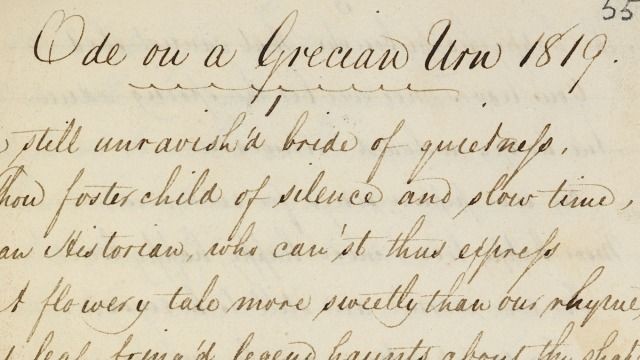 55
Ode on a Grecian Urn 1819.
1
still unravish'd bride of quietness,
hou foster child of silence and slow time,
an Historian, who can'st thus express
A flowery tale more sweetly than our rhyme,
leaf fring'd legend haunts about thy shape